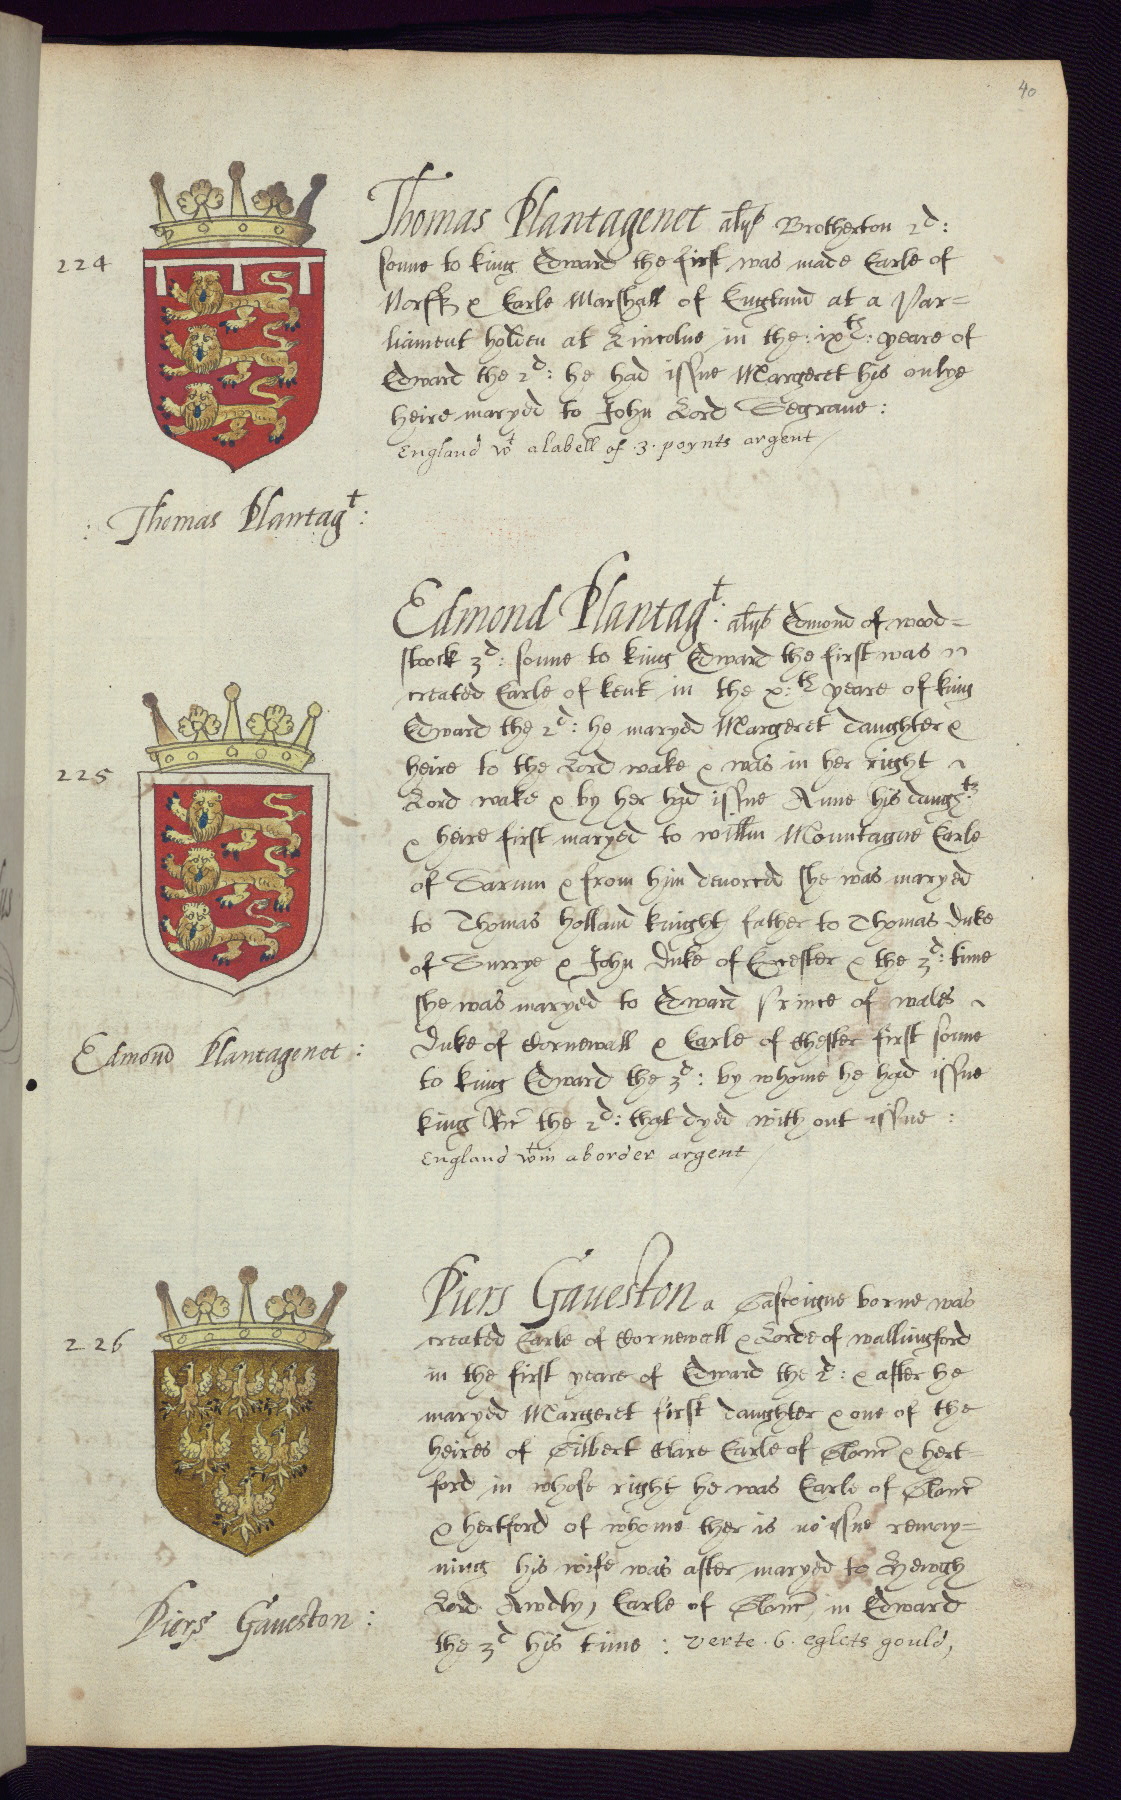 40
224
Thomas Plantagenet als Brotherton 2d:
sonne to king Edward the first was made Earle of
Norff & Earle Marshall of England at a Par=
liament holden at Lincolne in the: ixth: yeare of
Edward the 2d: he had issue Margeret his onlye
heire maryed to John Lord Segraue:
England wt a labell of .3. poynts argent
: Thomas Plantagt:
Edmond Plantagt: als Edmond of wood=
stock 3d: sonne to king Edward the first was
created Earle of kent in the x:th yeare of king
Edward the 2d: he maryed Margeret daughter &
225
heire to the Lord wake & was in her right
Lord wake & by her had issue Anne his daughtr
& heire first maryed to willm Mountague Earle
of Sarum & from him devorced she was maryed
to Thomas Holland knight father to Thomas Duke
of Surrye & John Duke of Excester & the 3d: time
she was maryed to Edward Prince of wales
Duke of Cornewall & Earle of Chester first sonne
Edmond Plantagenet :
to king Edward the 3d: by whome he had issue
king Ric the 2d: that dyed with out issue :
England wtin a border argent
Piers Gaueston a Gascoigne borne was
226
created Earle of Cornewall & Lorde of wallingford
in the first yeare of Edward the 2d: & after he
maryed Margeret first daughter & one of the
heires of Gilbert Clare Earle of Glouc & hert=
ford in whose right he was Earle of Glouc
& hertford of whome ther is no issue remay=
ning his wife was after maryed to Hewgh
Lord Awdly, Earle of Glouc in Edward
Piers Gaueston :
the 3d his time : verte .6. eglets gould,